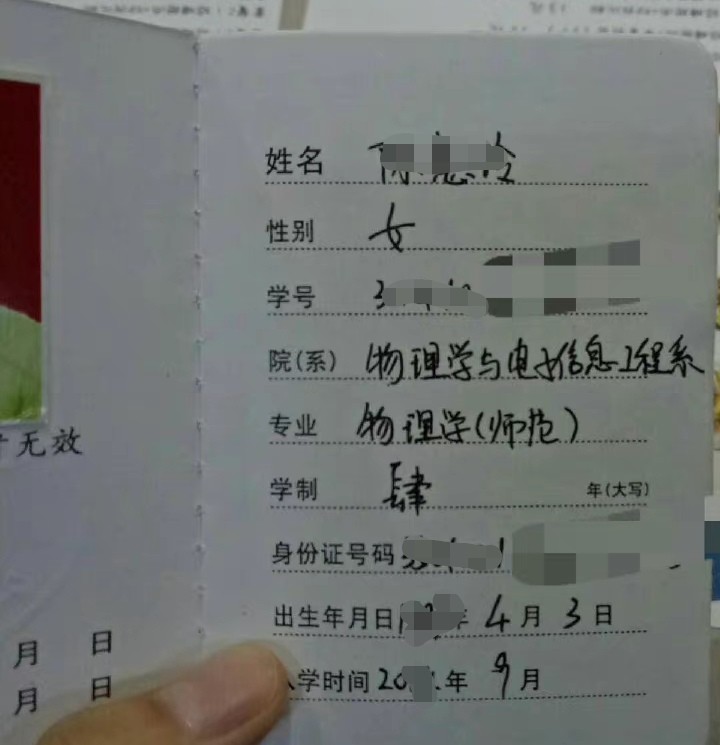 姓名
性别 女
学号
院(系) 物理学与电子信息工程系
专业 物理学(师范)
学制 肆 年(大写)
身份证号码
出生年月日 年 4 月 3 日
学时间 20 年 9 月
无效
月 日
月 日